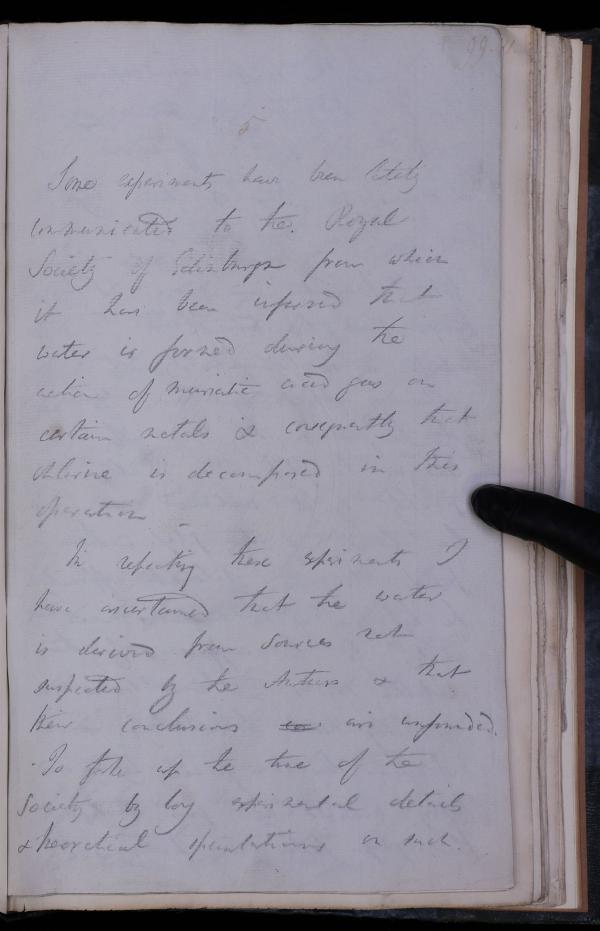 99.
5
Some experiments have been lately
communicated to the. Royal
Society of Edinburgh from which
it has been inferred that
water is formed during the
action of muriatic acid gas on
certain metals & consequently that
chlorine is decomposed in this
operation –
In repeating these experiments I
have ascertained that the water
is derived from sources not
suspected by the Authors & that
their conclusions are unfounded.
To take up the time of the
Society by long experimental details
& theoretical speculations on such.